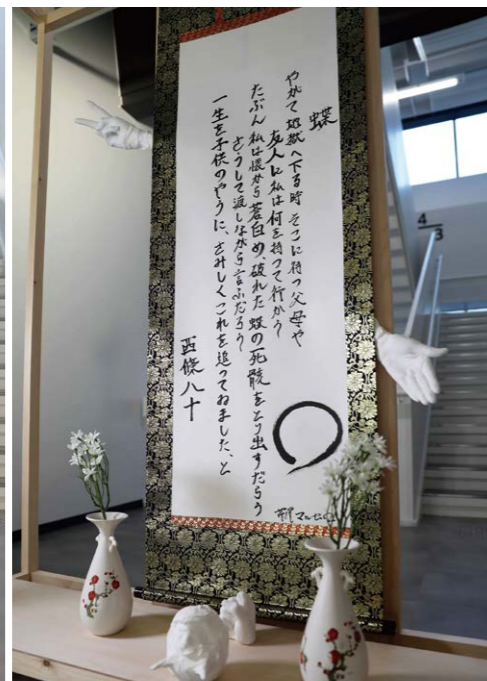 蝶
やがて地獄へ下る時そこに待つ父母や
友人に私は何を持つて行かう
たぶん私は懐から蒼白め、破れた蝶の死骸をとり出すだらう
さうして渡しながら言ふだらう
一生を子供のやうに、さみしくこれを追つてゐました、と
西條八十
4
3